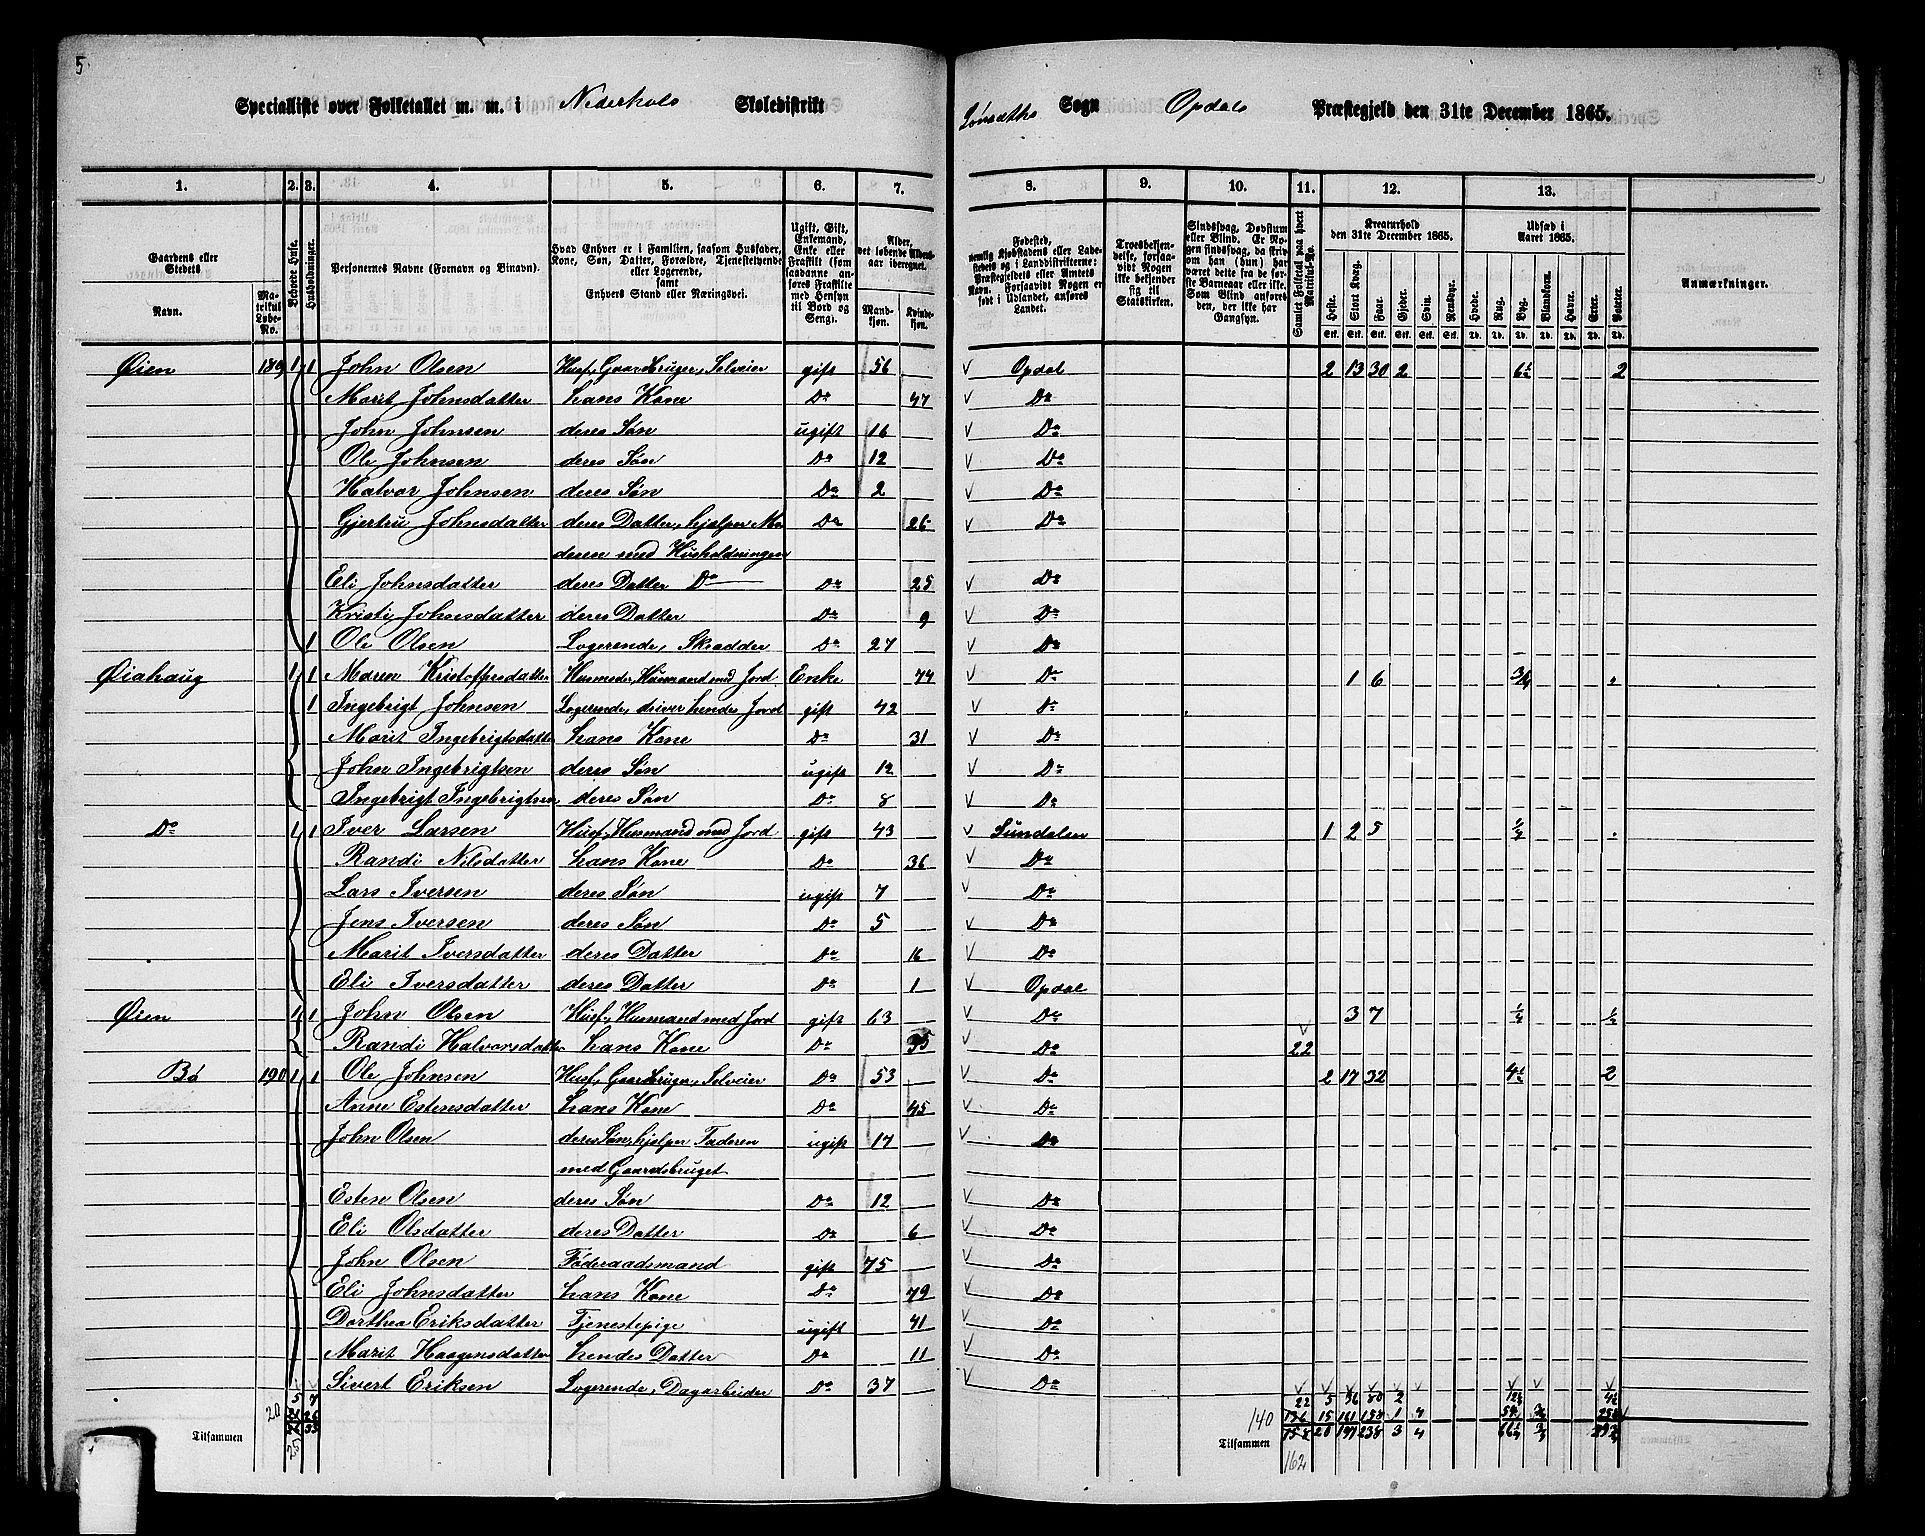 5
Specialliste over Folketallet m. m. i Nederhols Skoledistrikt Lønseths Sogn Opdals Præstegjeld den 31te December 1865.
1. 2. 3. 4. 5. 6. 7. 8. 9. 10. 11. 12. 13.
Gaardens eller Stedets
Navn.
Matrikul Løbe-No.
Beboede Huse.
Husholdninger.
Personernes Navne (Fornavn og Binavn).
Hvad Enhver er i Familien, saasom Husfader, Kone, Søn, Datter, Forældre, Tjenestetyende eller Logerende, samt Enhvers Stand eller Næringsvei.
Ugift, Gift, Enkemand, Enke eller Fraskilt (som saadanne anføres Fraskilte med Hensyn til Bord og Seng).
Alder, det løbende Alders-aar iberegnet.
Mandkjøn. Kvindekjøn.
Fødested, nemlig Kjøbstadens eller Ladestedets og i Landdistrikterne: Præstegjeldets eller Amtets Navn. Forsaavidt Nogen er født i Udlandet, anføres Landet.
Troesbekjendelse, forsaavidt Nogen ikke bekjender sig til Statskirken.
Sindssvag, Døvstum eller Blind. Er Nogen sindssvag, da skrives om han (hun) har været dette fra de første Barneaar eller ikke. Som Blind anføres den, der ikke har Gangsyn.
Samlet Folketal paa hvert Matrikul-No.
Kreaturhold den 31te December 1865.
Heste. Stort Kvæg. Faar. Gjeder. Svin. Rensdyr.
Udsæd i Aaret 1865.
Hvede. Rug. Byg. Blandkorn. Havre. Erter. Poteter.
Anmærkninger.
Øien 189 1 1 John Olsen Husf, Gaardbruger, Selveier gift 56 Opdal 2 13 30 2 6½ 2
Marit Johnsdatter hans Kone Do 47 Do
John Johnsen deres Søn ugift 16 Do
Ole Johnsen deres Søn Do 12 Do
Halvar Johnsen deres Søn Do 2 Do
Gjertru Johnsdatter deres Datter, hjelper Mo Do 26 Do
deren med Husholdningen
Eli Johnsdatter deres Datter Do Do 25 Do
Kristi Johnsdatter deres Datter Do 9 Do
1 Ole Olsen Logerende, Skradder Do 27 Do
Øiahaug 1 1 Maren Kristoffersdatter Husmoder, Husmand med Jord Enke 74 Do 1 6 ¾ .
1 Ingebrigt Johnsen Logerende, driver hendes Jord gift 42 Do
Marit Ingebrigtsdatter hans Kone Do 31 Do
John Ingebrigtsen deres Søn ugift 12 Do
Ingebrigt Ingebrigtsen deres Søn Do 8 Do
Do 1 1 Iver Larsen Husf, Husmand med Jord gift 43 Sundalen 1 2 5 ½ .
Randi Nilsdatter hans Kone Do 36 Do
Lars Iversen deres Søn ugift 7 Do
Jens Iversen deres Søn Do 5 Do
Marit Iversdatter deres Datter Do 16 Do
Eli Iversdatter deres Datter Do 1 Opdal
Øien 1 1 John Olsen Husf, Husmand med Jord gift 63 Do 3 7 ½ ½
Randi Halvorsdatter hans Kone Do 35 Do 22
Bø 190 1 1 Ole Johnsen Husf, Gaardbruger, Selveier Do 53 Do 2 17 32 4½ 2
Anne Estensdatter hans Kone Do 45 Do
John Olsen deres Søn, hjelper Faderen ugift 17 Do
med Gaardsbruget
Esten Olsen deres Søn Do 12 Do
Eli Olsdatter deres Datter Do 6 Do
John Olsen Føderaadsmand gift 75 Do
Eli Johnsdatter hans Kone Do 79 Do
Dorthea Eriksdatter Tjenestepige ugift 41 Do
Marit Haagensdatter hendes Datter Do 11 Do
Sivert Eriksen Logerende, Dagarbeider Do 37 Do
5 7 22 5 36 80 2
20 26 140 136 15 161 158 1 4
Tilsammen 25 33 Tilsammen 158 20 197 238 3 4
162